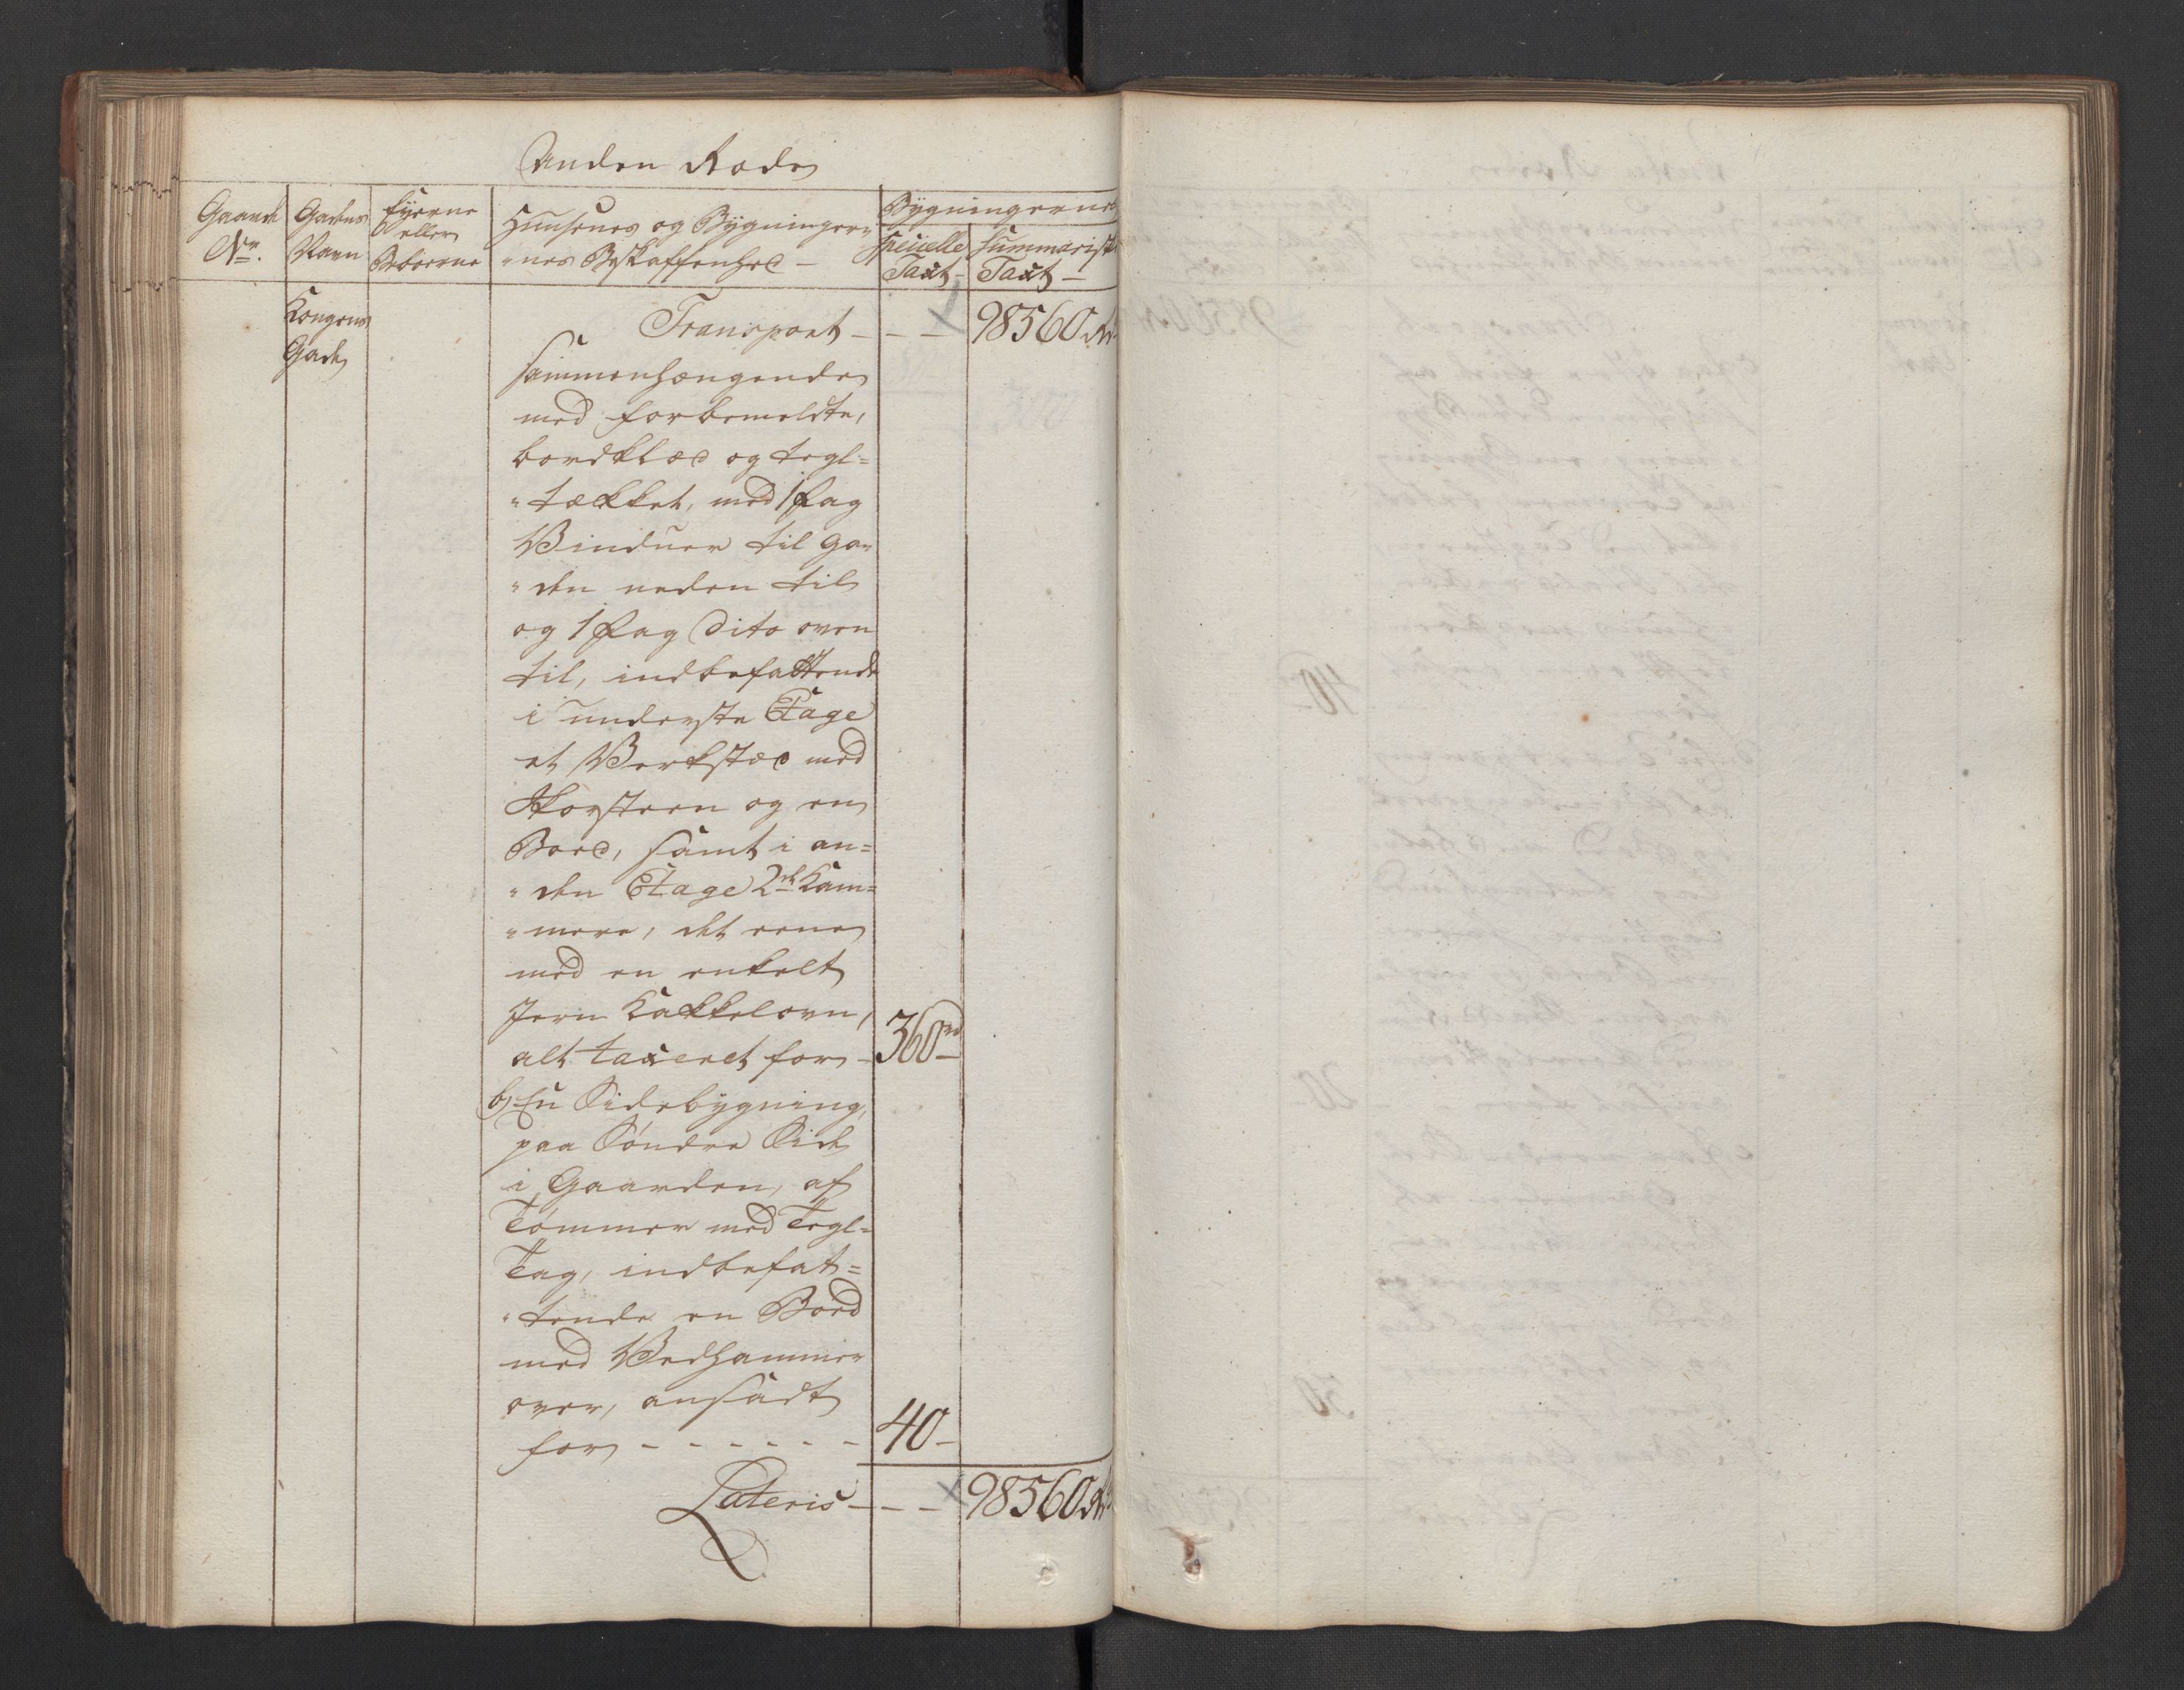 Anden Rode
Gaarde No. | Gadens Navn | Eyerne eller Beboerne | Huusenes og Bygninger-nes Beskaffenhed – | Bygningernes Specielle Taxt – | Summarisk Taxt –
Kongens Gade
Transport – – – 98560 Rd
Sammenhængende
med forbemeldte,
bordklæd og tegl=
"tækket, med 1 Fag
Vinduer til Ga"
"den neden til
og 1 Fag Dito oven
til, indbefattende
i underste Etage
et Verkstæd med
Skorsteen og en
Boed, samt i an=
"den Etage 2de Kam=
"mere, det eene
med en enkelt
Jern Kakkelovn,
alt taxeret for – 360 rd –
b, En Sidebygning,
paa Søndre Side
i Gaarden, af
Tømmer med Tegl=
Tag, indbefat=
"tende en Boed
med Vedhammer
over, ansadt
for – – – – – – 40 –
Lateris – – – 98560 Rd